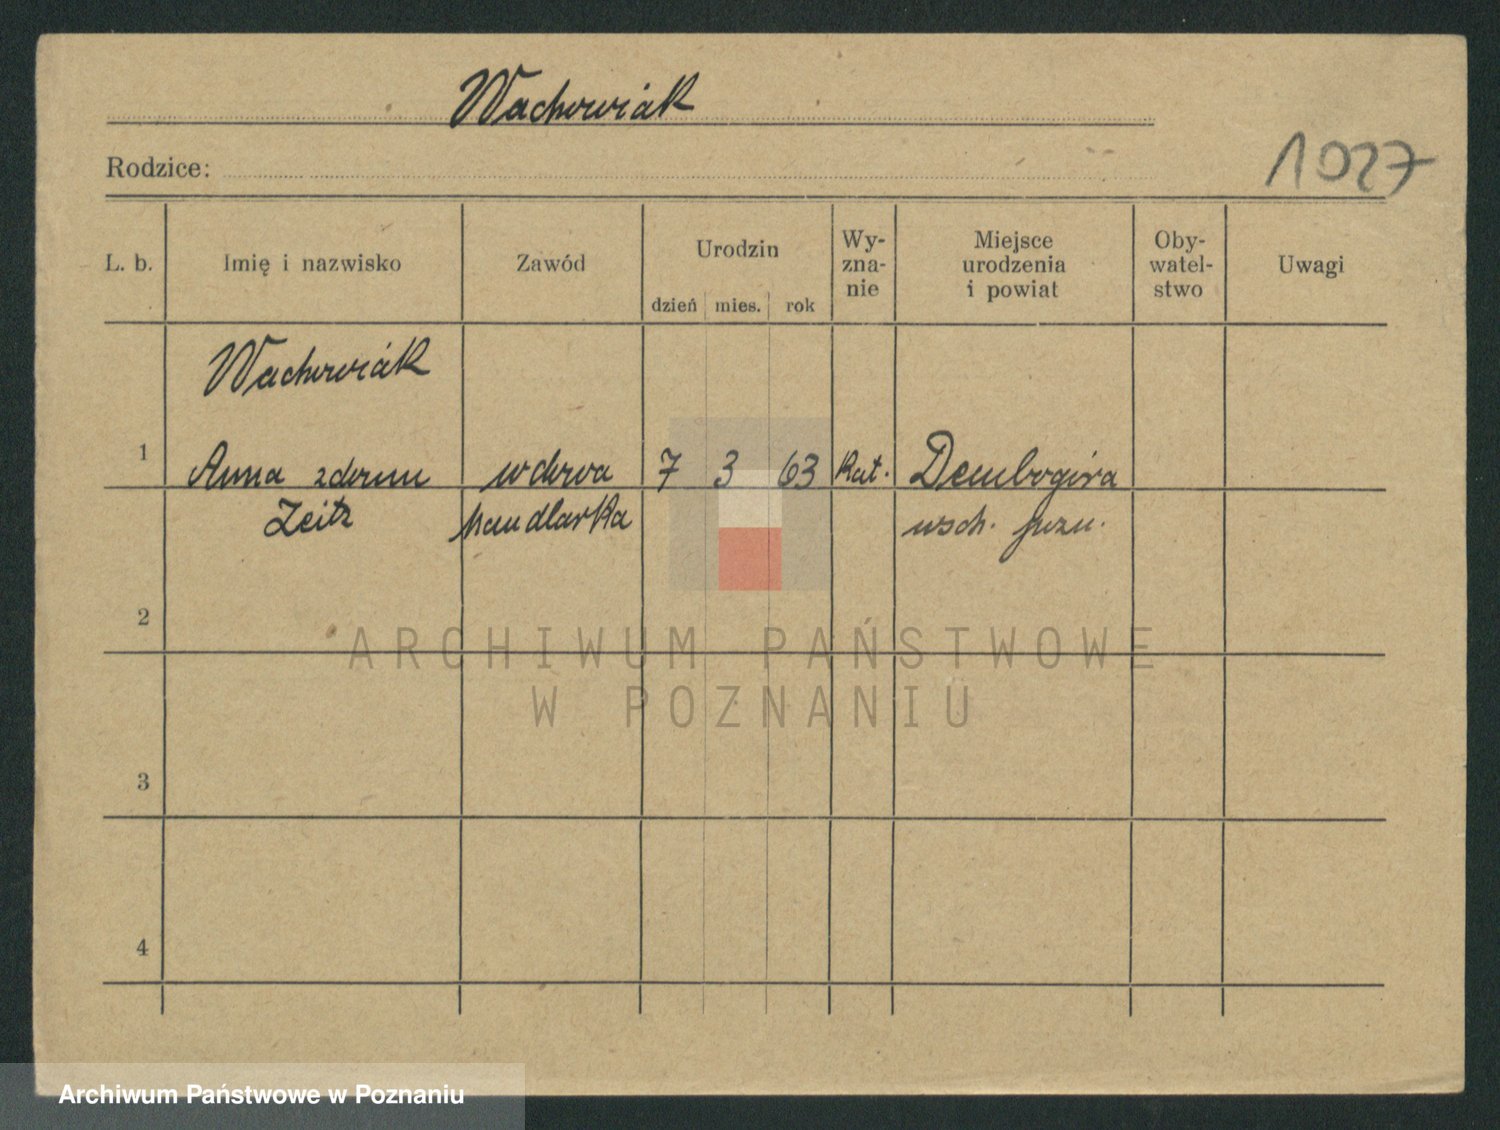 Wachowiak
Rodzice:
1027
L. b.
Imię i nazwisko
Zawód
Urodzin
dzień mies. rok
Wy-
zna-
nie
Miejsce
urodzenia
i powiat
Oby-
watel-
stwo
Uwagi
Wachowiak
1 Anna z domu wdowa 7 3 63 Kat. Dembogóra
Zeitz handlarka wsch. pozn.
2
3
4
ARCHIWUM PAŃSTWOWE
W POZNANIU
Archiwum Państwowe w Poznaniu